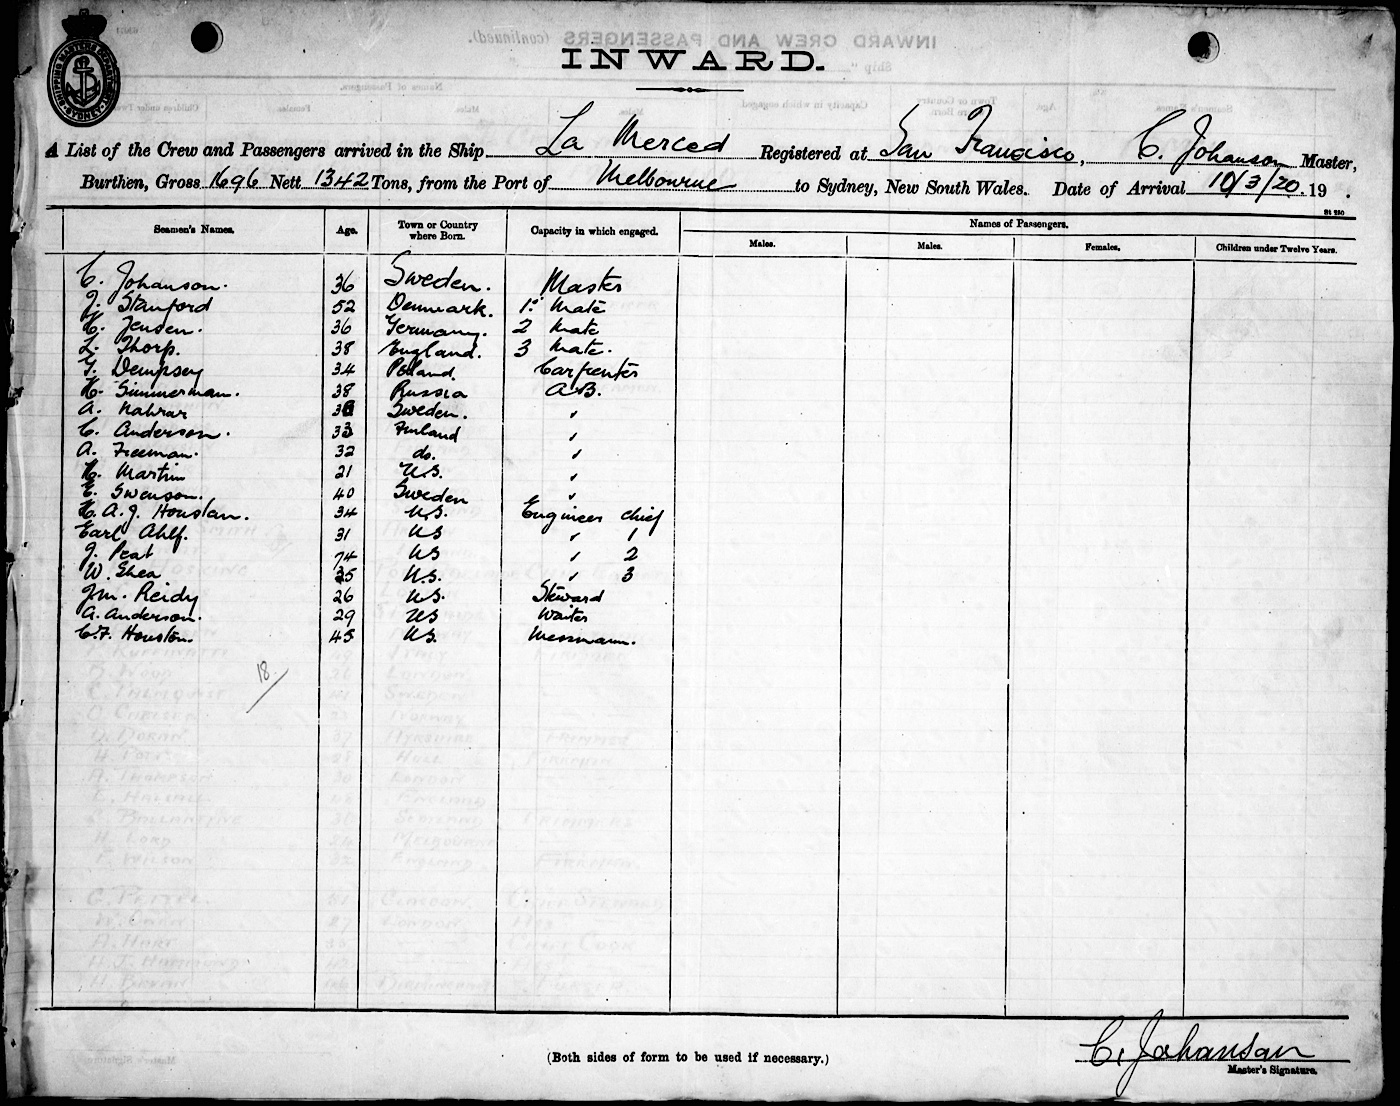 SHIPPING MASTERS DEPARTMENT SYDNEY
INWARD.
A List of the Crew and Passengers arrived in the Ship La Merced Registered at San Francisco, C. Johanson Master,
Burthen, Gross 1696 Nett 1342 Tons, from the Port of Melbourne to Sydney, New South Wales. Date of Arrival 10/3/20. 19 .
St 250
Seamen's Names. Age. Town or Country where Born. Capacity in which engaged. Names of Passengers.
Males. Males. Females. Children under Twelve Years.
C. Johanson. 36 Sweden. Master
J. Stanford 52 Denmark. 1. Mate
C. Jensen. 36 Germany. 2 Mate
L. Thorp. 38 England. 3 Mate.
G. Dempsey 34 Poland. Carpenter
H. Simmerman. 38 Russia A.B.
A. Nahrar Sweden. "
C. Anderson. 33 Finland "
A. Freeman. 32 do. "
H. Martin 21 U.S. "
E. Swenson. 40 Sweden "
H. A. J. Houston. 34 U.S. Engineer chief
Earl Ahlf. 31 US " 1
J. Peat 74 US " 2
W. Shea 35 U.S. " 3
J.M. Reidy 26 U.S. Steward
A. Anderson. 29 US Waiter
C.F. Houston. 45 US. Messmann.
18
(Both sides of form to be used if necessary.)
C. Johanson
Master's Signature.